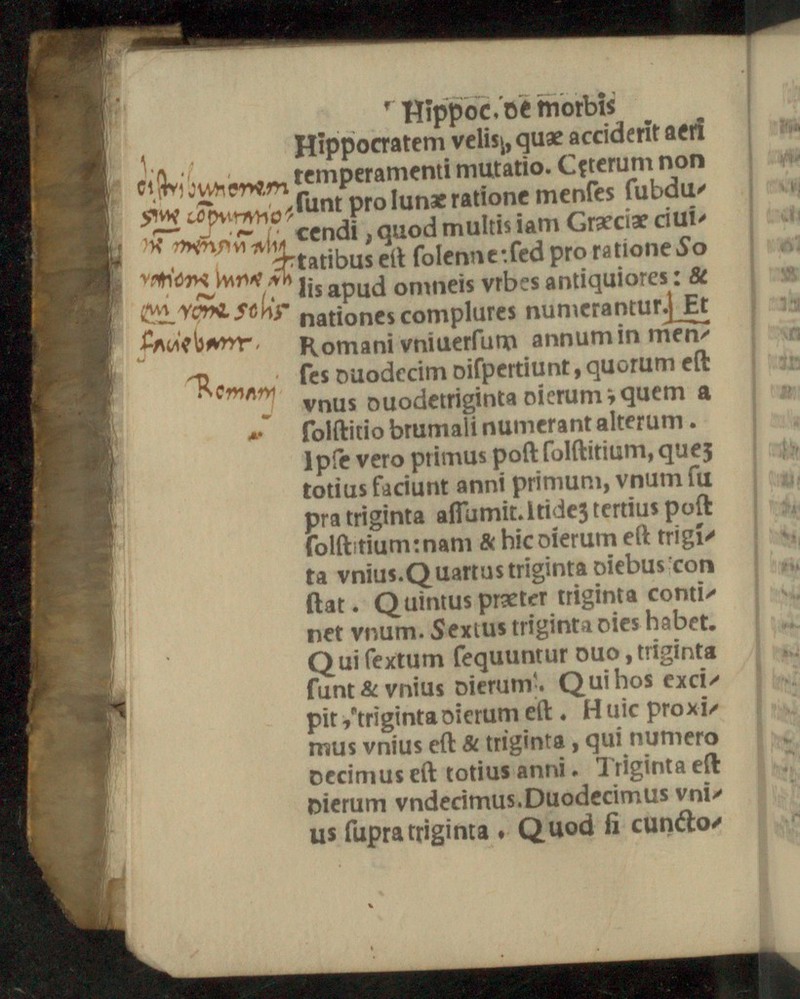 Hippoc. de morbis
Hippocratem velis, quæ acciderit aeri
temperamenti mutatio. Cęterum non
ſunt pro lunæ ratione menſes ſubdu-
cendi, quod multis iam Græciæ ciui-
tatibus eſt ſolenne: ſed pro ratione So
lis apud omneis vrbes antiquiores: &
nationes complures numerantur. Et
Romani vniuerſum annum in men-
ſes duodecim diſpertiunt, quorum eſt
vnus duodetriginta dierum; quem a
ſolſtitio brumali numerant alterum.
Ipſe vero primus poſt ſolſtitium, queꝫ
totius faciunt anni primum, vnum ſu
pra triginta aſſumit. Itideꝫ tertius poſt
ſolſtitium: nam & hic dierum eſt trigī-
ta vnius. Quartus triginta diebus con
ſtat. Quintus præter triginta conti-
net vnum. Sextus triginta dies habet.
Qui ſextum ſequuntur duo, triginta
ſunt & vnius dierum. Qui hos exci-
pit, triginta dierum eſt. Huic proxi-
mus vnius eſt & triginta, qui numero
decimus eſt totius anni. Triginta eſt
dierum vndecimus. Duodecimus vni-
us ſupra triginta. Quod ſi cuncto-
Romani